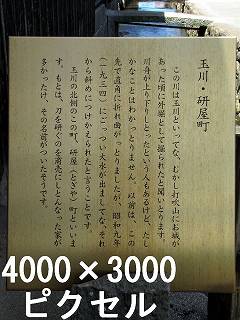 玉川・研屋町
この川は玉川といってな、むかし打吹山にお城が
あった頃に外堀として掘られたと聞いとります。
川舟が上り下りしとったという人もあるけど、たし
かなことはわかっとりません。以前は、この
先で直角に折れ曲がっとりましたが、昭和九年
(一九三四)にごっつい大水が出ましてな、それ
から斜めにつけかえられたと云うことです。
玉川の北側のこの町、研屋(とぎや)町といいま
す。もとは、刀を研ぐのを商売にしとんなった家が
多かったけ、その名前がついたそうです。
4000×3000
ピクセル